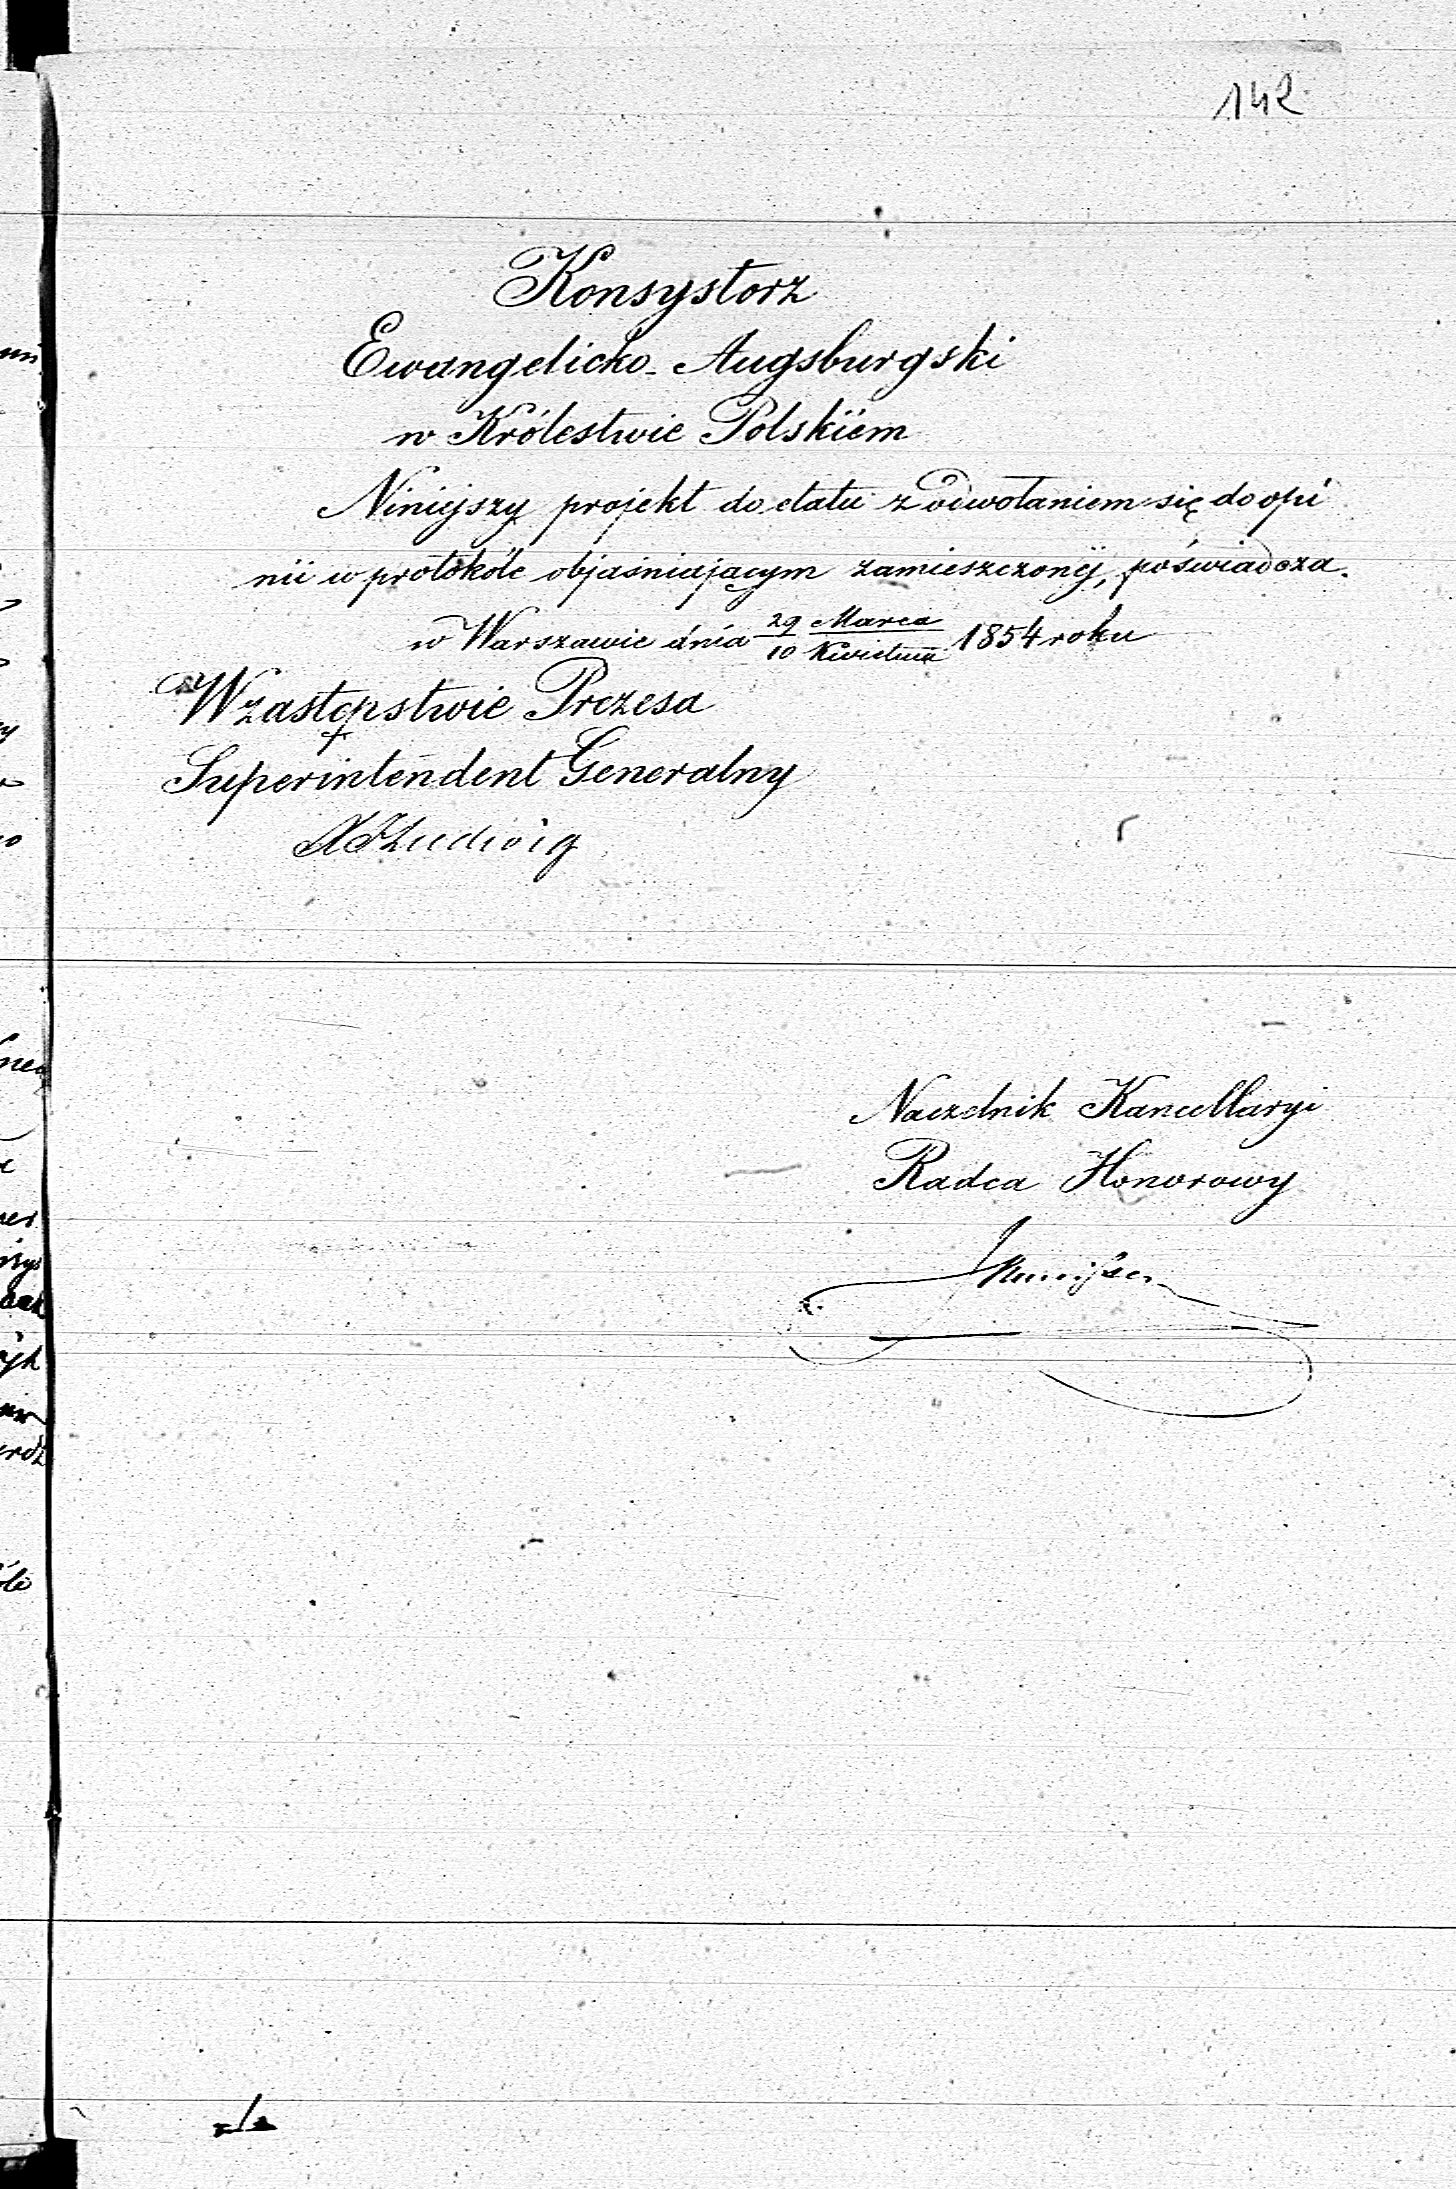 142
Konsystorz
Ewangelicko-Augsburgski
w Królestwie Polskiem
Niniejszy projekt do etatu z odwołaniem się do opi
nii w protokóle objaśniającym zamieszczonéj, poświadcza.
w Warszawie dnia 29 Marca / 10 Kwietnia 1854 roku
W zastępstwie Prezesa
Superintendent Generalny
Ludwig
Naczelnik Kancellaryi
Radca Honorowy